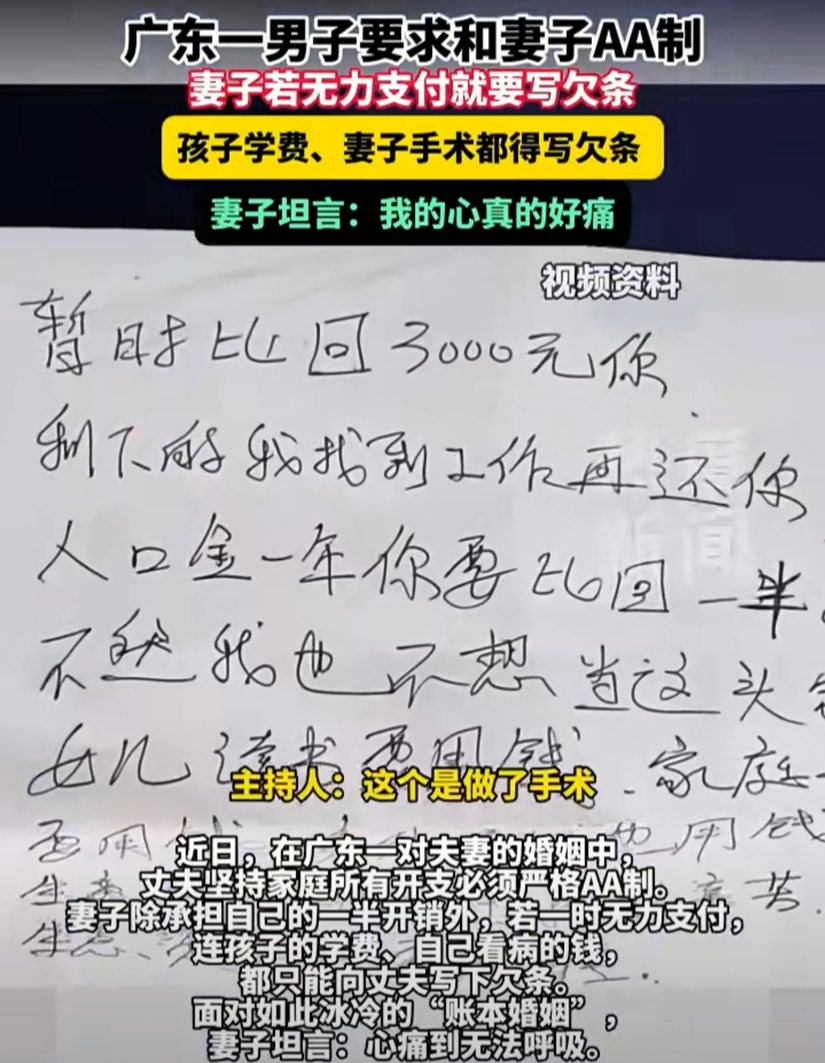 广东一男子要求和妻子AA制
妻子若无力支付就要写欠条
孩子学费、妻子手术都得写欠条
妻子坦言：我的心真的好痛
视频资料
暂时比回3000元你
剩下的我找到工作再还你
人口金一年你要比回一半
不然我也不想当这头
女儿读书要用钱、家庭
要用钱 也用钱
主持人：这个是做了手术
近日，在广东一对夫妻的婚姻中，
丈夫坚持家庭所有开支必须严格AA制。
妻子除承担自己的一半开销外，若一时无力支付，
连孩子的学费、自己看病的钱，
都只能向丈夫写下欠条。
面对如此冰冷的“账本婚姻”，
妻子坦言：心痛到无法呼吸。